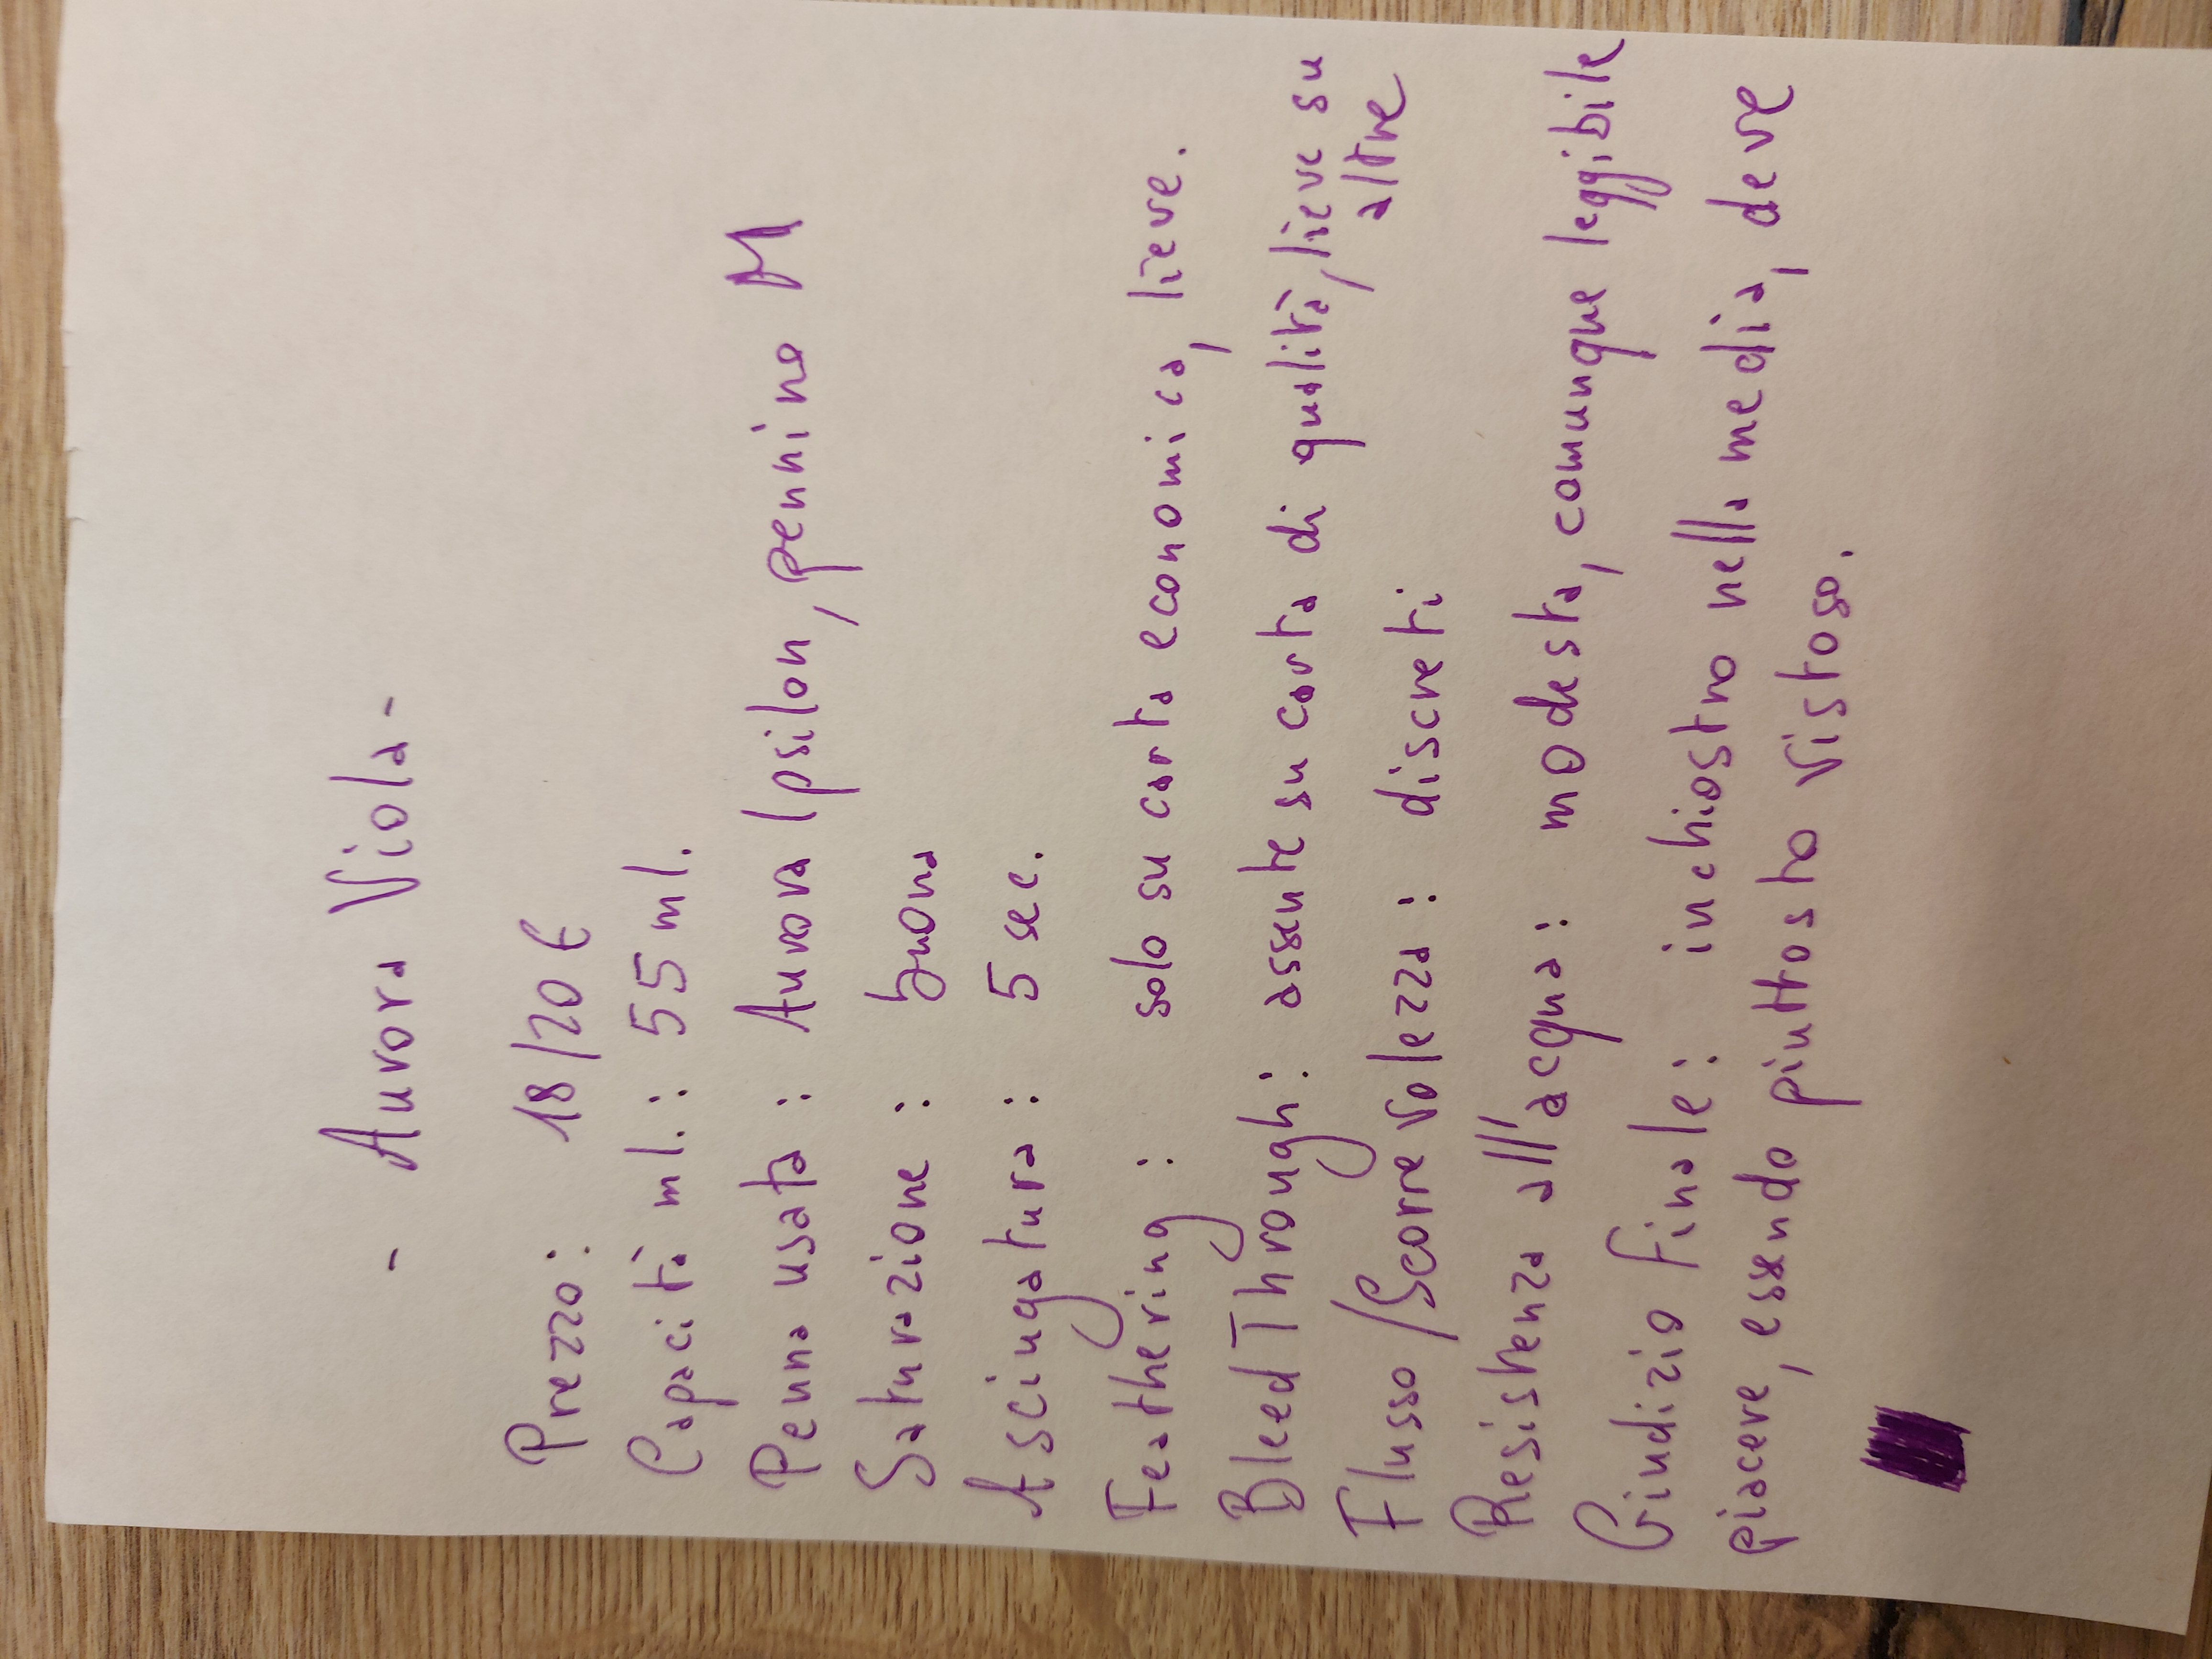 - Aurora Viola -
Prezzo: 18/20 €
Capacità ml.: 55 ml.
Penna usata: Aurora Ipsilon, pennino M
Saturazione: buona
Asciugatura: 5 sec.
Feathering: solo su carta economica, lieve.
Bleed Through: assente su carta di qualità, lieve su
altre
Flusso/Scorrevolezza: discreti
Resistenza all'acqua: modesta, comunque leggibile
Giudizio finale: inchiostro nella media, deve
piacere, essendo piuttosto vistoso.